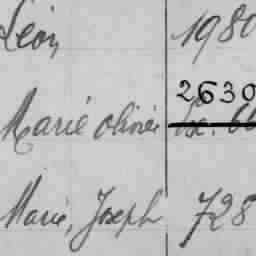 Léon 1980
2630
Marie olivier
Marie, Joseph 728